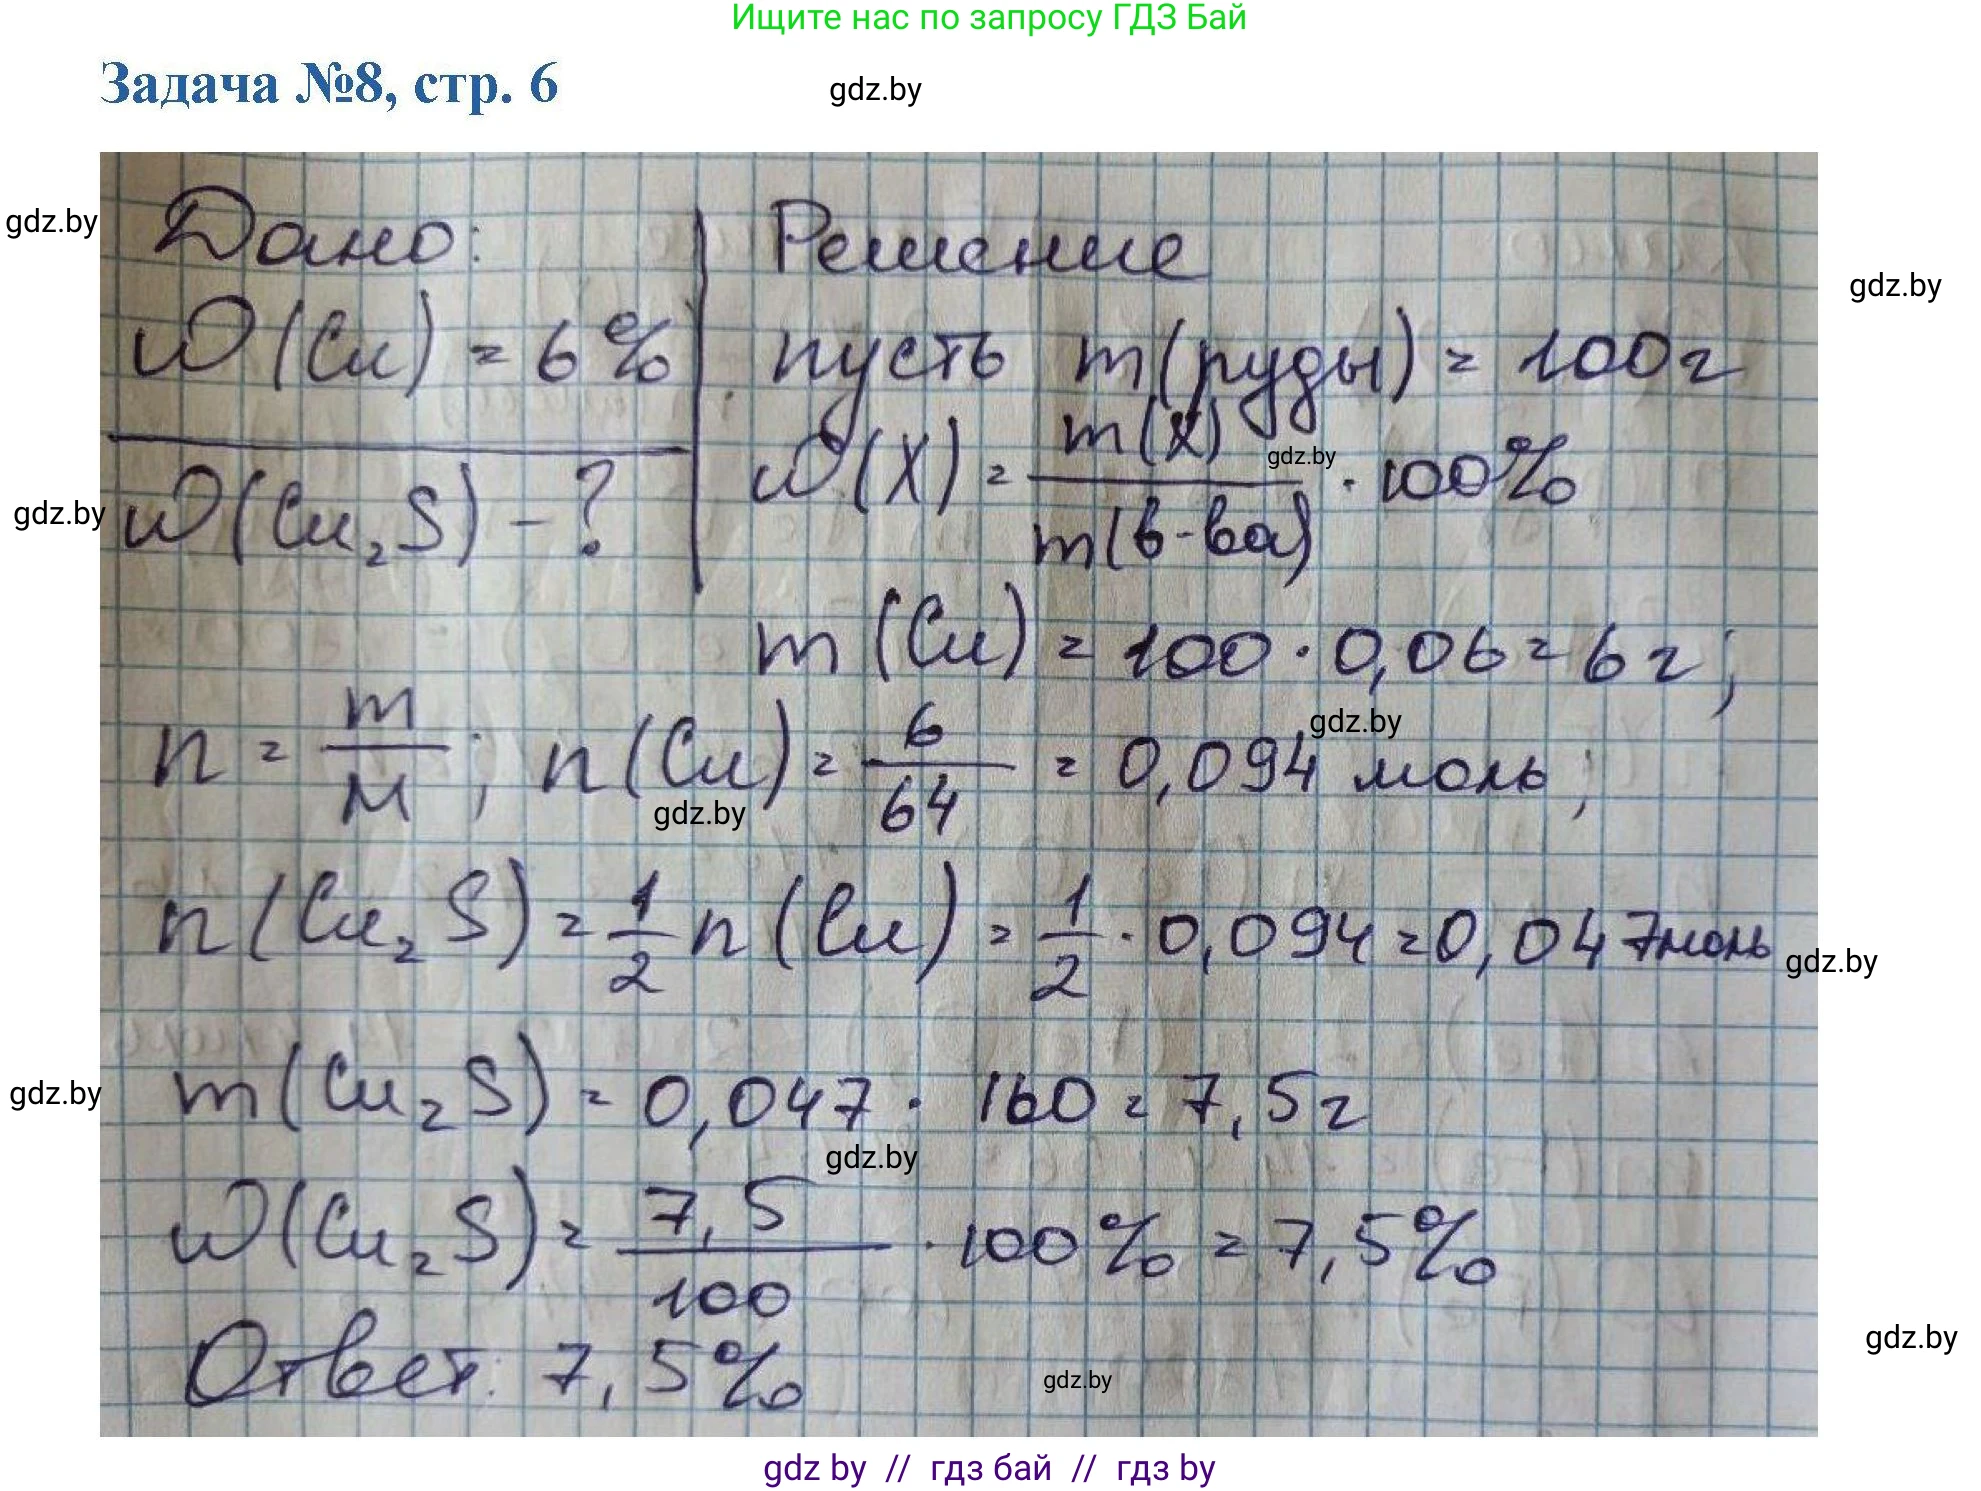 Ищите нас по запросу ГДЗ Бай
Задача №8, стр. 6
gdz.by
gdz.by
Дано:
Решение
gdz.by
w(Cu) = 6%
пусть m(руды) = 100г
w(X) = m(X) / m(в-ва) · 100%
gdz.by
gdz.by
w(Cu₂S) - ?
m(Cu) = 100 · 0,06 = 6г;
gdz.by
n = m/M; n(Cu) = 6/64 = 0,094 моль;
gdz.by
n(Cu₂S) = 1/2 n(Cu) = 1/2 · 0,094 = 0,047моль
gdz.by
gdz.by
m(Cu₂S) = 0,047 · 160 = 7,5г
gdz.by
w(Cu₂S) = 7,5/100 · 100% = 7,5%
gdz.by
Ответ: 7,5%
gdz.by
gdz by // гдз бай // гдз by